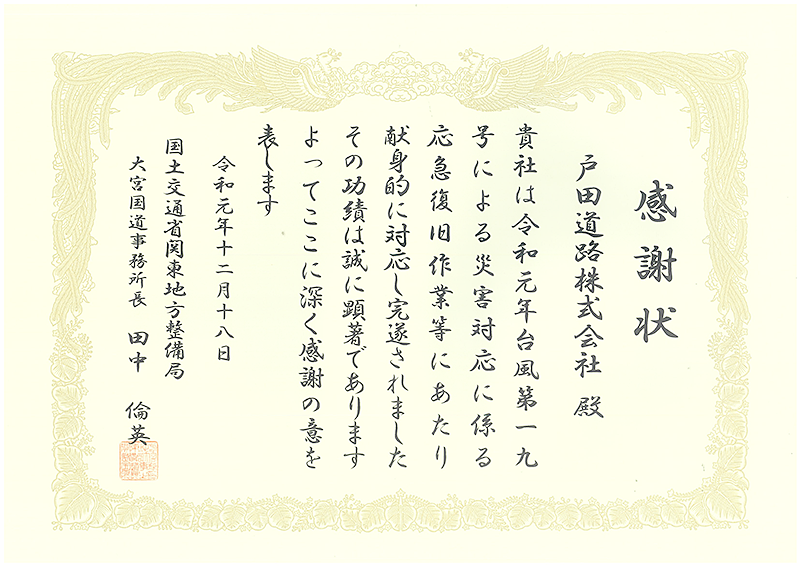 感謝状
戸田道路株式会社 殿
貴社は令和元年台風第一九
号による災害対応に係る
応急復旧作業等にあたり
献身的に対応し完遂されました
その功績は誠に顕著であります
よってここに深く感謝の意を
表します
令和元年十二月十八日
国土交通省関東地方整備局
大宮国道事務所長 田中 倫英